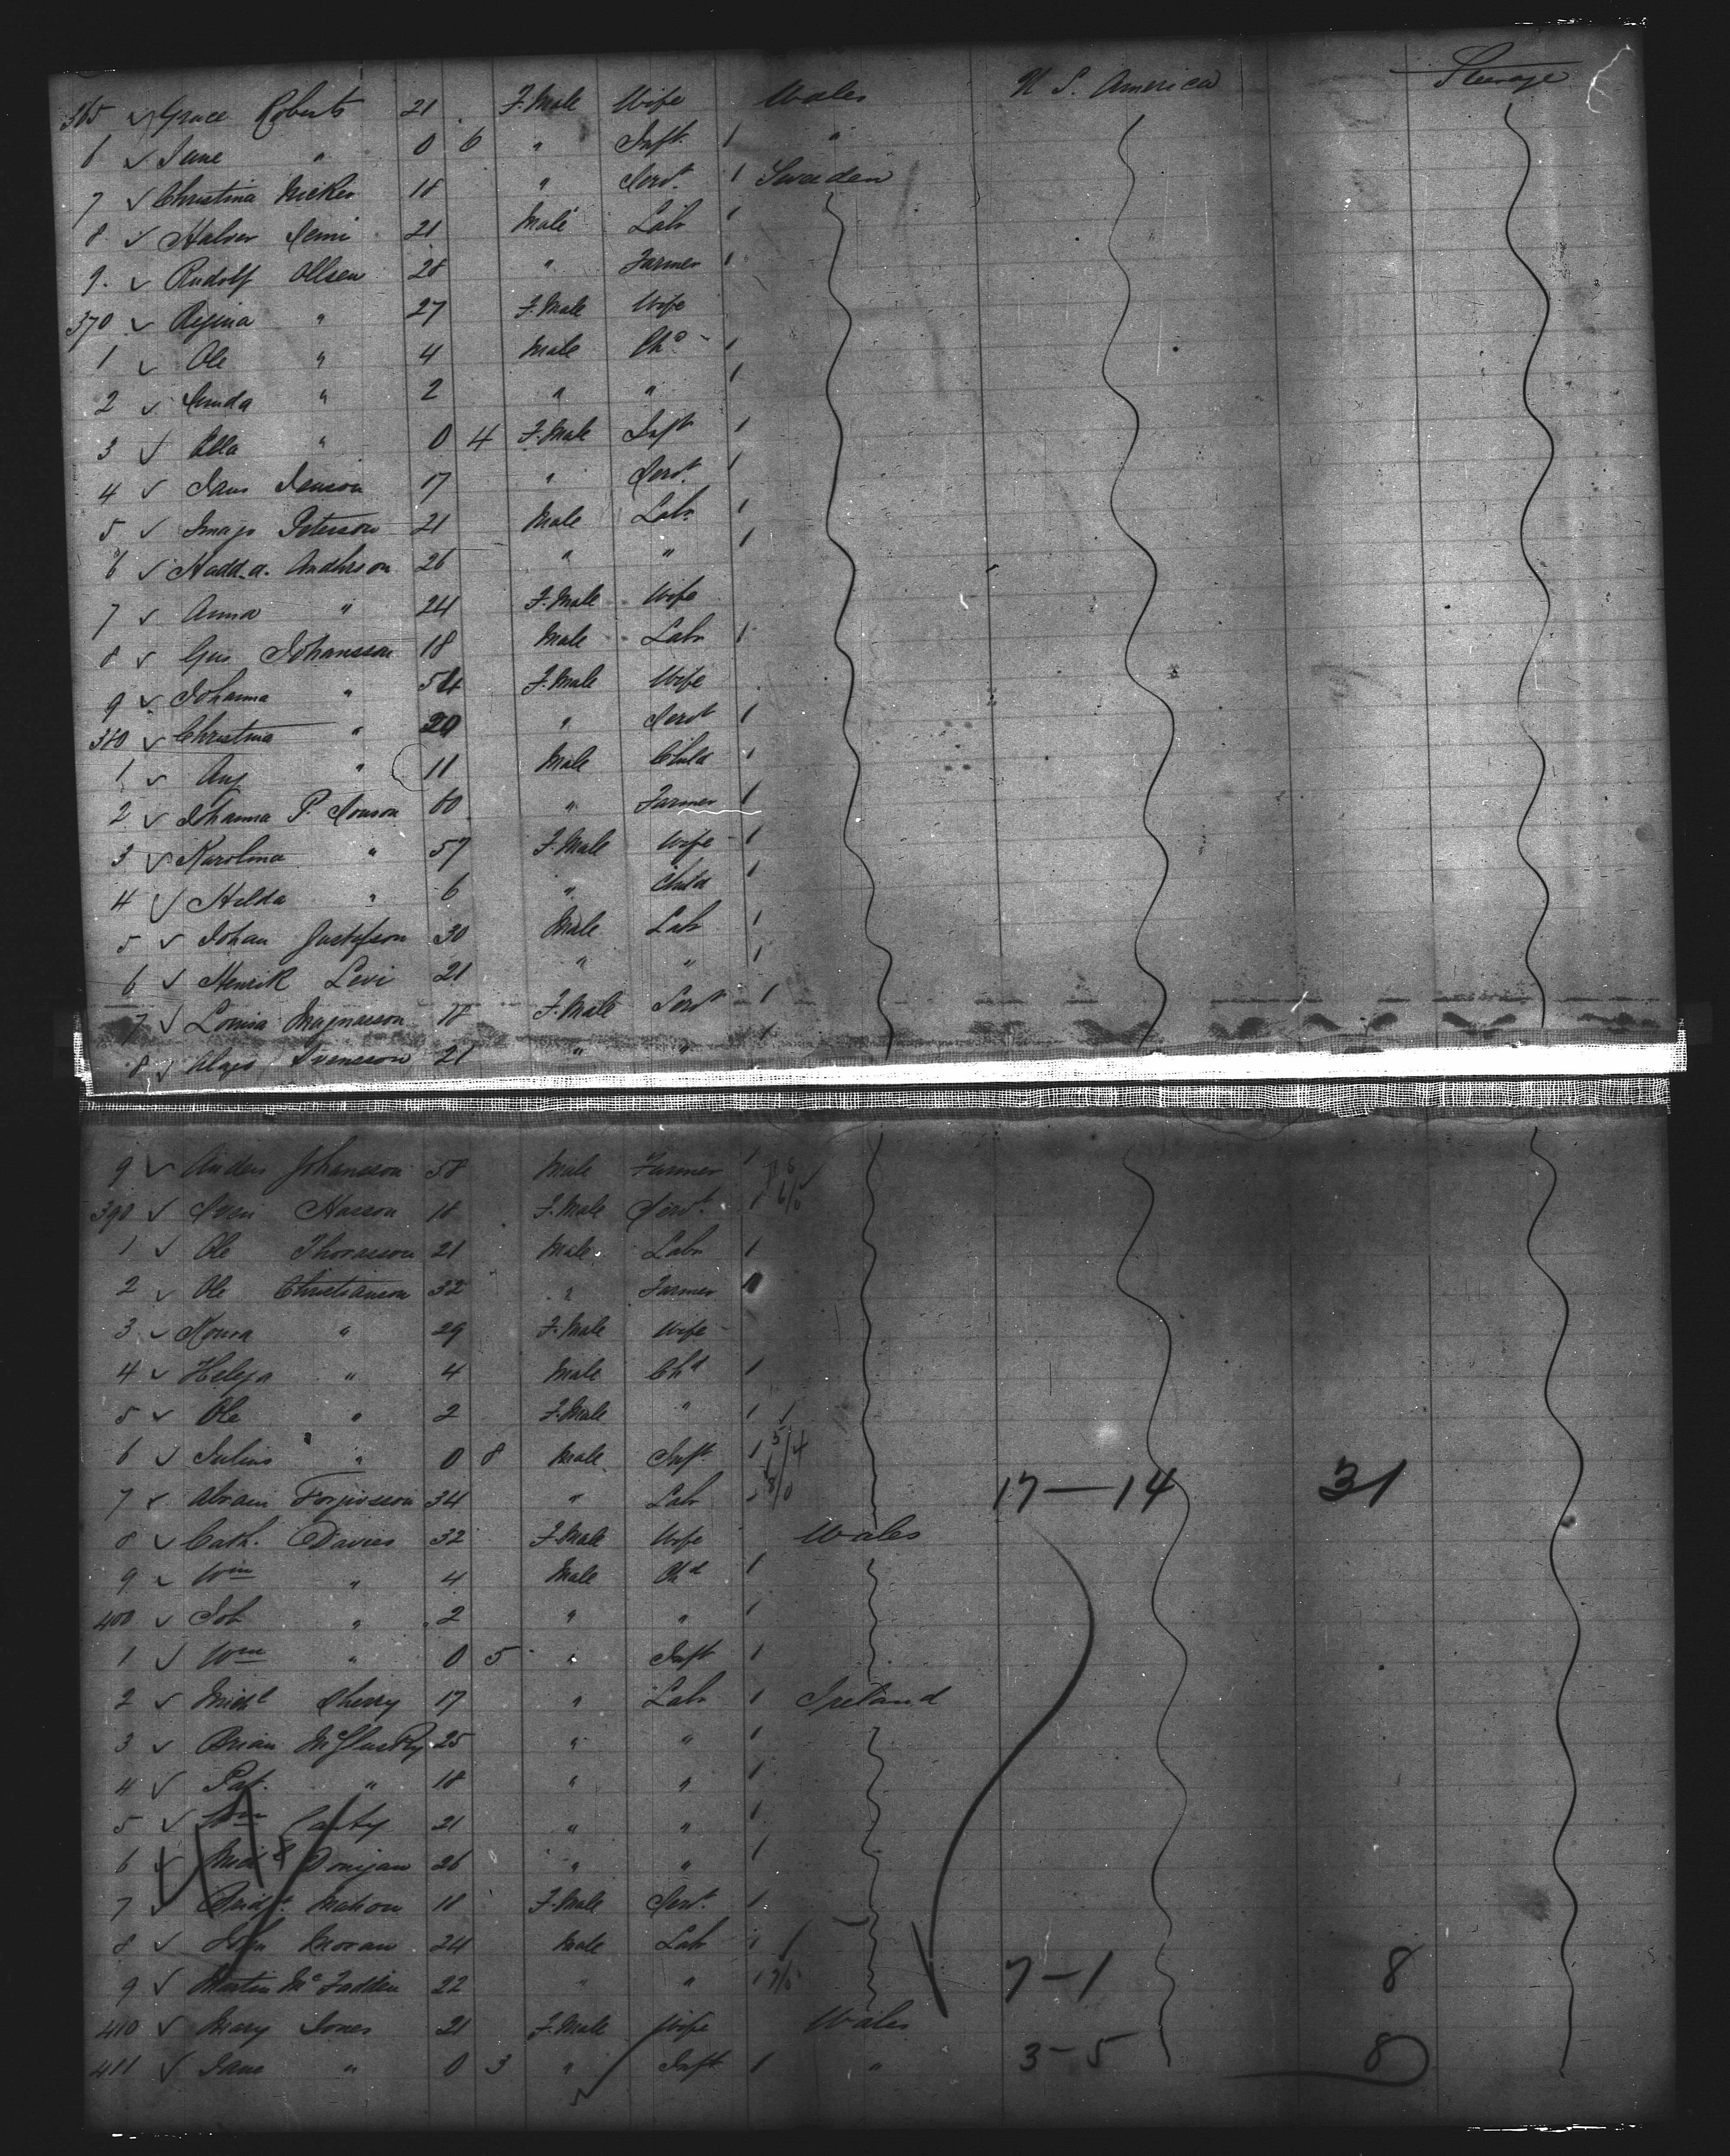 365 ✓ Grace Roberts 21 F.Male Wife Wales U S. America Steerage
6 ✓ Jane " 0 6 " Inft. 1 "
7 ✓ Christina 18 " Servt. 1 Sweden
8 ✓ Halvor 21 Male Labr 1
9 ✓ Rudolf Ollsen 28 " Farmer 1
370 ✓ Regina " 27 F.Male Wife
1 ✓ Ole " 4 Male Chd 1
2 ✓ " 2 " " 1
3 ✓ Ella " 0 4 F.Male Inft 1
4 ✓ 17 " Servt. 1
5 ✓ Peterson 21 Male Labr 1
6 ✓ 26 " " 1
7 ✓ Anna " 24 F.Male Wife
8 ✓ Gus Johansson 18 Male Labr 1
9 ✓ Johanna " 54 F.Male Wife
380 ✓ Christina " 20 " Servt 1
1 ✓ Aug " 11 Male Child 1
2 ✓ Johanna P. 60 " Farmer 1
3 ✓ Karolina " 57 F.Male Wife 1
4 ✓ Hilda " 6 " Child 1
5 ✓ Johan Gustafson 30 Male Labr 1
6 ✓ Henrik Levi 21 " " 1
7 ✓ Lovisa Magnasson 18 F.Male Servt 1
8 ✓ Svensson 21 " " 1
9 ✓ Anders Johansson 58 Male Farmer 1
390 ✓ Sven Hasson 18 F.Male Servt. 1
1 ✓ Ole Thorasson 21 Male Labr 1
2 ✓ Ole Christianson 32 " Farmer
3 ✓ " 29 F.Male Wife
4 ✓ Helga " 4 Male Chd 1
5 ✓ Ole " 2 F.Male " 1
6 ✓ Julius " 0 8 Male Inft. 1
7 ✓ 34 " Labr 17—14 31
8 ✓ Cath. Davies 32 F.Male Wife Wales
9 ✓ Wm " 4 Male Chd 1
400 ✓ " 2 " " 1
1 ✓ Wm " 0 5 " Inft 1
2 ✓ Michl Sherry 17 " Labr 1 Ireland
3 ✓ Brian McGlusky 25 " " 1
4 ✓ Pat. " 18 " " 1
5 ✓ Wm Carty 21 " " 1
6 ✓ Michl Donigan 26 " " 1
7 ✓ Bridt. Mahon 18 F.Male Servt. 1
8 ✓ John Moran 24 Male Labr 1
9 ✓ Martin McFadden 22 " " 1 7—1 8
410 ✓ Mary Jones 21 F.Male Wife Wales
411 ✓ Jane " 0 3 " Inft 1 " 3-5 8